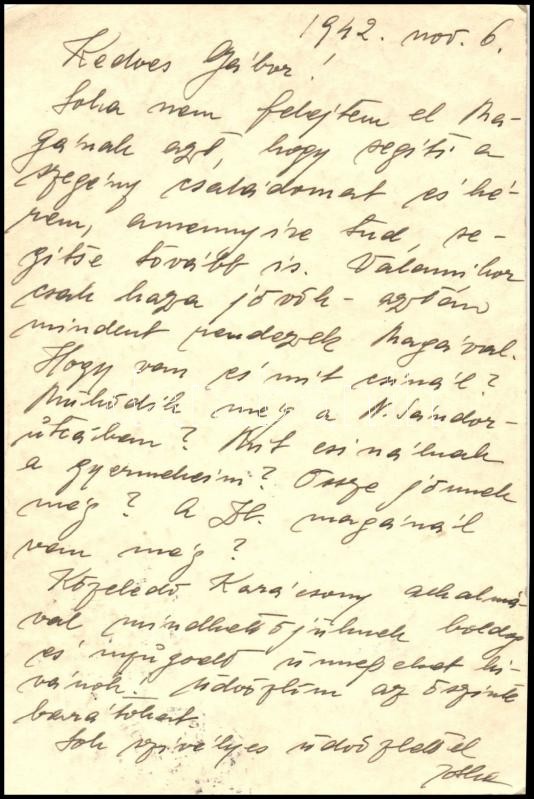 1942. nov. 6.
Kedves Gábor!
Soha nem felejtem el Ma-
gának azt, hogy segíti a
szegény családomat és ké-
rem, amennyire tud, se-
gítse tovább is. Valamikor
csak haza jövök - aztán
mindent rendezek Magával.
Hogy van és mit csinál?
Működik még a N. Sándor-
utcában? Mit csinálnak
a gyermekeim? Össze jönnek
még? A magánál
van még?
Közeledő Karácsony alkalmá-
val mindkettőjüknek boldog
és nyugodt ünnepeket kí-
vánok! Üdvözlöm az őszinte
barátokat
Sok szívélyes üdvözlettel